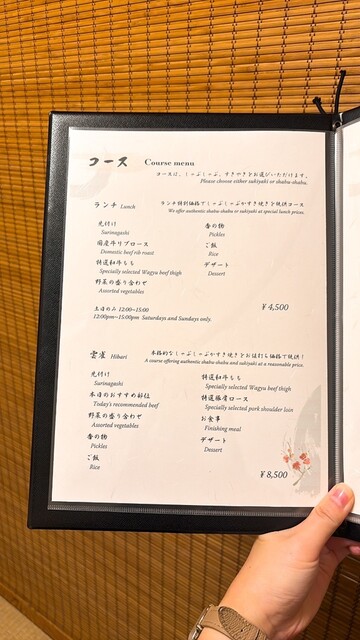 コース Course menu
コースは、しゃぶしゃぶ、すきやきとお選びいただけます。
Please choose either sukiyaki or shabu-shabu.
ランチ Lunch ランチ特別価格でしゃぶしゃぶかすき焼きを提供コース
We offer authentic shabu-shabu or sukiyaki at special lunch prices.
先付け
Surinagashi
国産牛リブロース
Domestic beef rib roast
特選和牛もも
Specially selected Wagyu beef thigh
野菜の盛り合わせ
Assorted vegetables
香の物
Pickles
ご飯
Rice
デザート
Dessert
土日のみ 12:00~15:00
12:00pm~15:00pm Saturdays and Sundays only.
¥4,500
雲雀 Hibari 本格的なしゃぶしゃぶかすき焼きをお値打ち価格で提供!
A course offering authentic shabu-shabu and sukiyaki at a reasonable price.
先付け
Surinagashi
本日のおすすめ部位
Today's recommended beef
野菜の盛り合わせ
Assorted vegetables
香の物
Pickles
ご飯
Rice
特選和牛もも
Specially selected Wagyu beef thigh
特選豚肩ロース
Specially selected pork shoulder loin
お食事
Finishing meal
デザート
Dessert
¥8,500